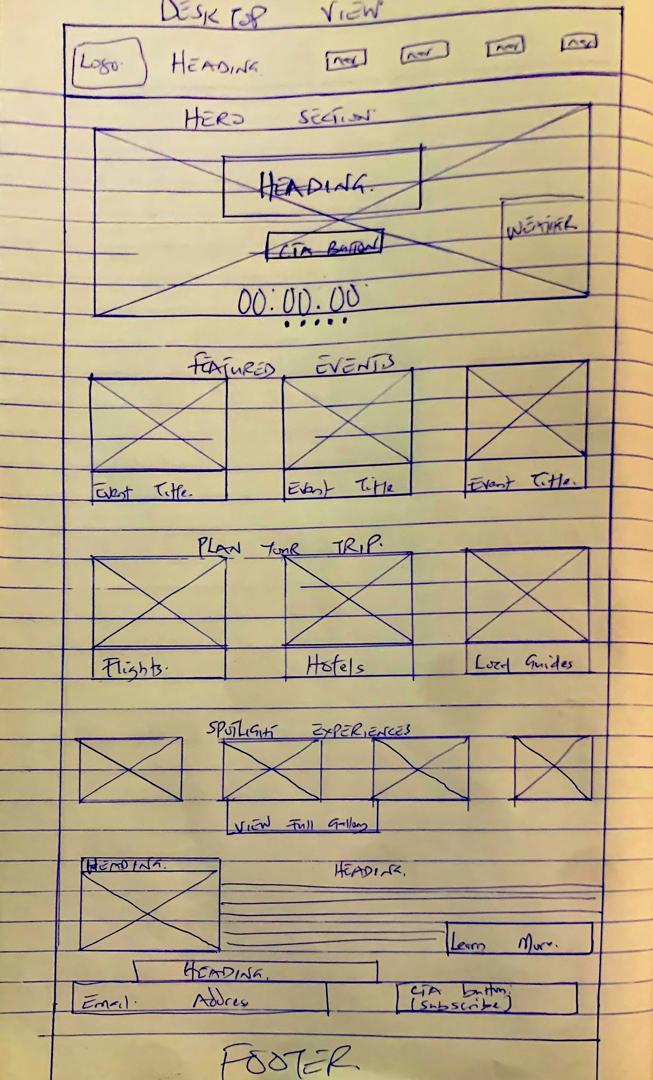 DESKTOP VIEW
Logo. HEADING. nav nav nav nav
HERO SECTION
HEADING.
CTA BUTTON
WEATHER
00:00.00
FEATURED EVENTS
Event Title. Event Title Event Title.
PLAN YOUR TRIP.
Flights. Hotels Local Guides
SPOTLIGHT EXPERIENCES
VIEW Full Gallery
HEADING. HEADING.
Learn More.
HEADING.
Email. Addres CTA button.
(Subscribe)
FOOTER